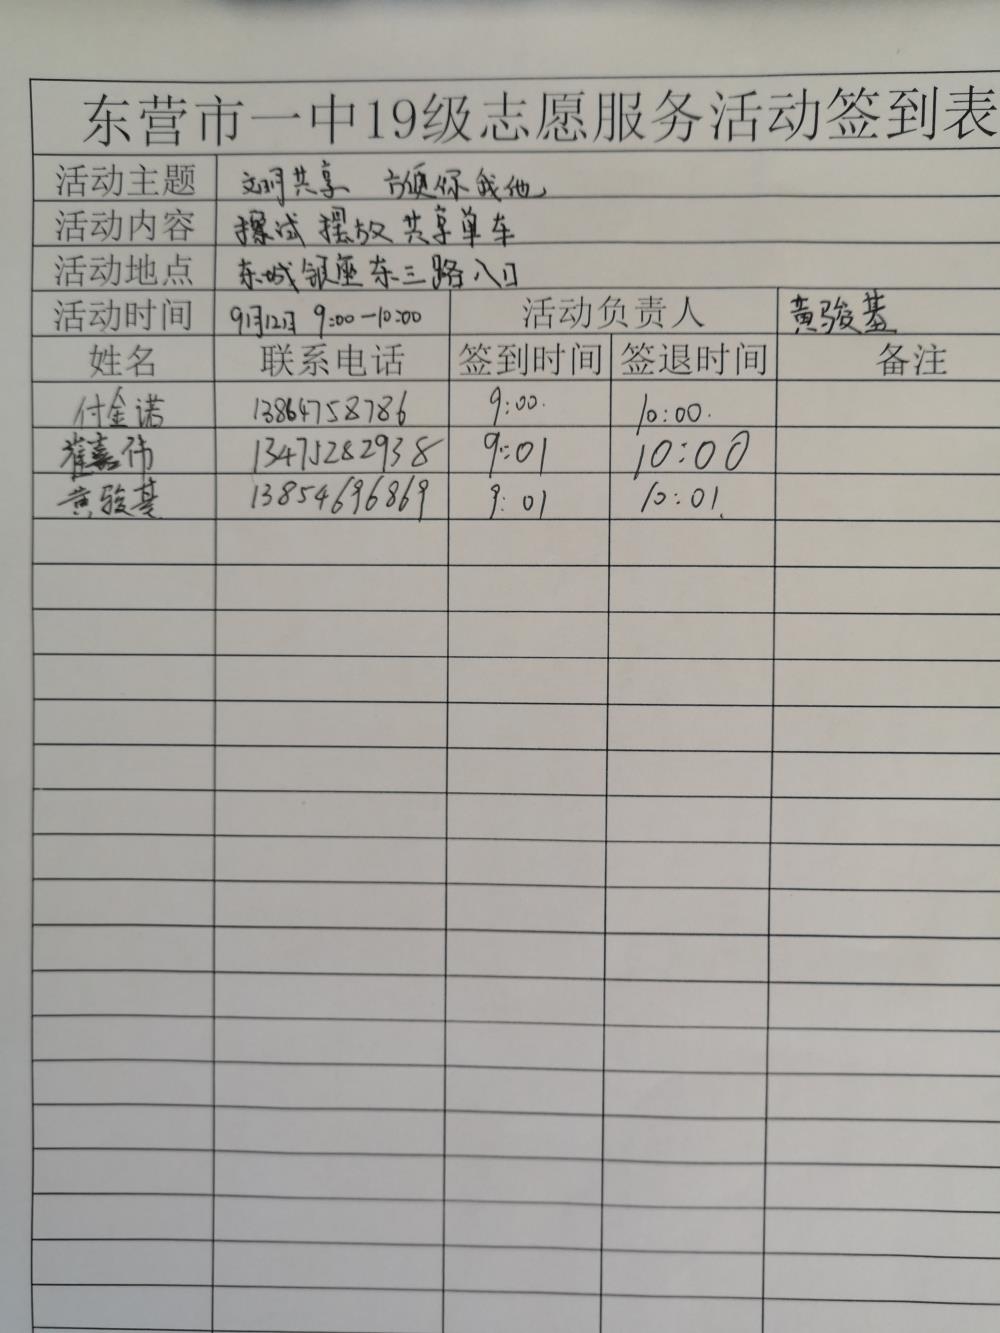 东营市一中19级志愿服务活动签到表
活动主题 文明共享 方便你我他
活动内容 擦试 摆放 共享单车
活动地点 东城银座东三路八口
活动时间 9月12日 9:00-10:00 活动负责人 黄骏基
姓名 联系电话 签到时间 签退时间 备注
付金诺 13864758786 9:00. 10:00.
崔嘉伟 13475282938 9:01 10:00
黄骏基 13854696869 9:01 10:01.